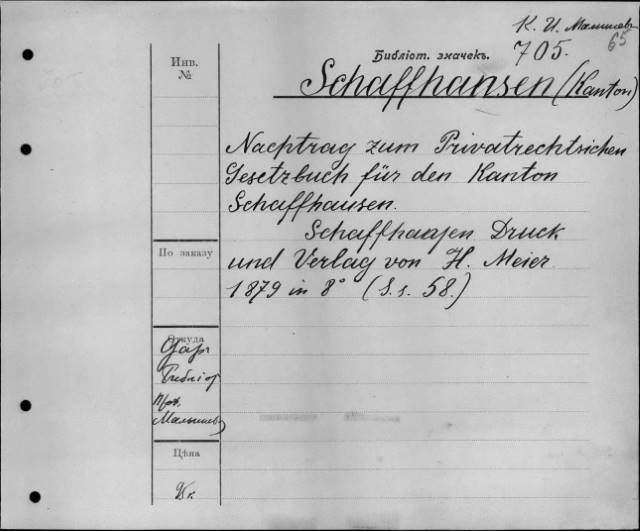 К. И. Малышевъ
65
Библіот. значекъ.
705.
Инв.
№
Schaffhansen (Kanton)
Nachtrag zum Privatrechtsichen
Gesetzbuch für den Kanton
Schaffhausen.
Schaffhaajen Druck
und Verlag von H. Meier
1879 in 8° (S.s. 58.)
По заказу
Откуда
Даръ
Библіот
Малышев
Цѣна